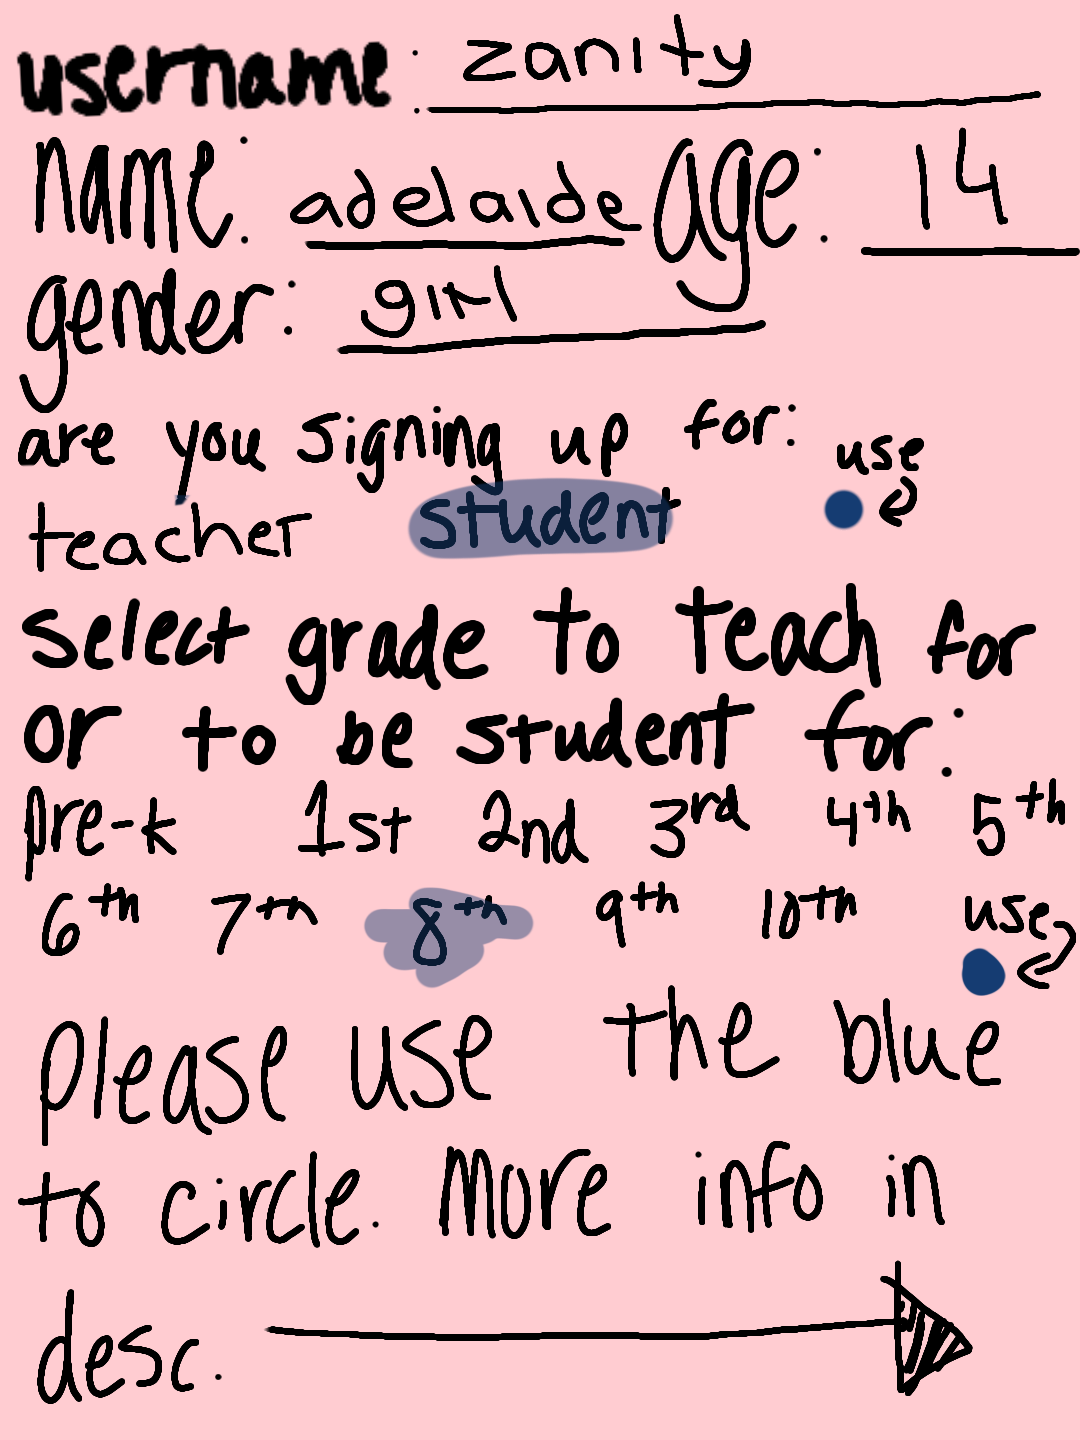 username: zanity
name: adelaide age: 14
gender: girl
are you signing up for: use
teacher student
select grade to teach for
or to be student for:
pre-k 1st 2nd 3rd 4th 5th
6th 7th 8th 9th 10th use
please use the blue
to circle. More info in
desc.